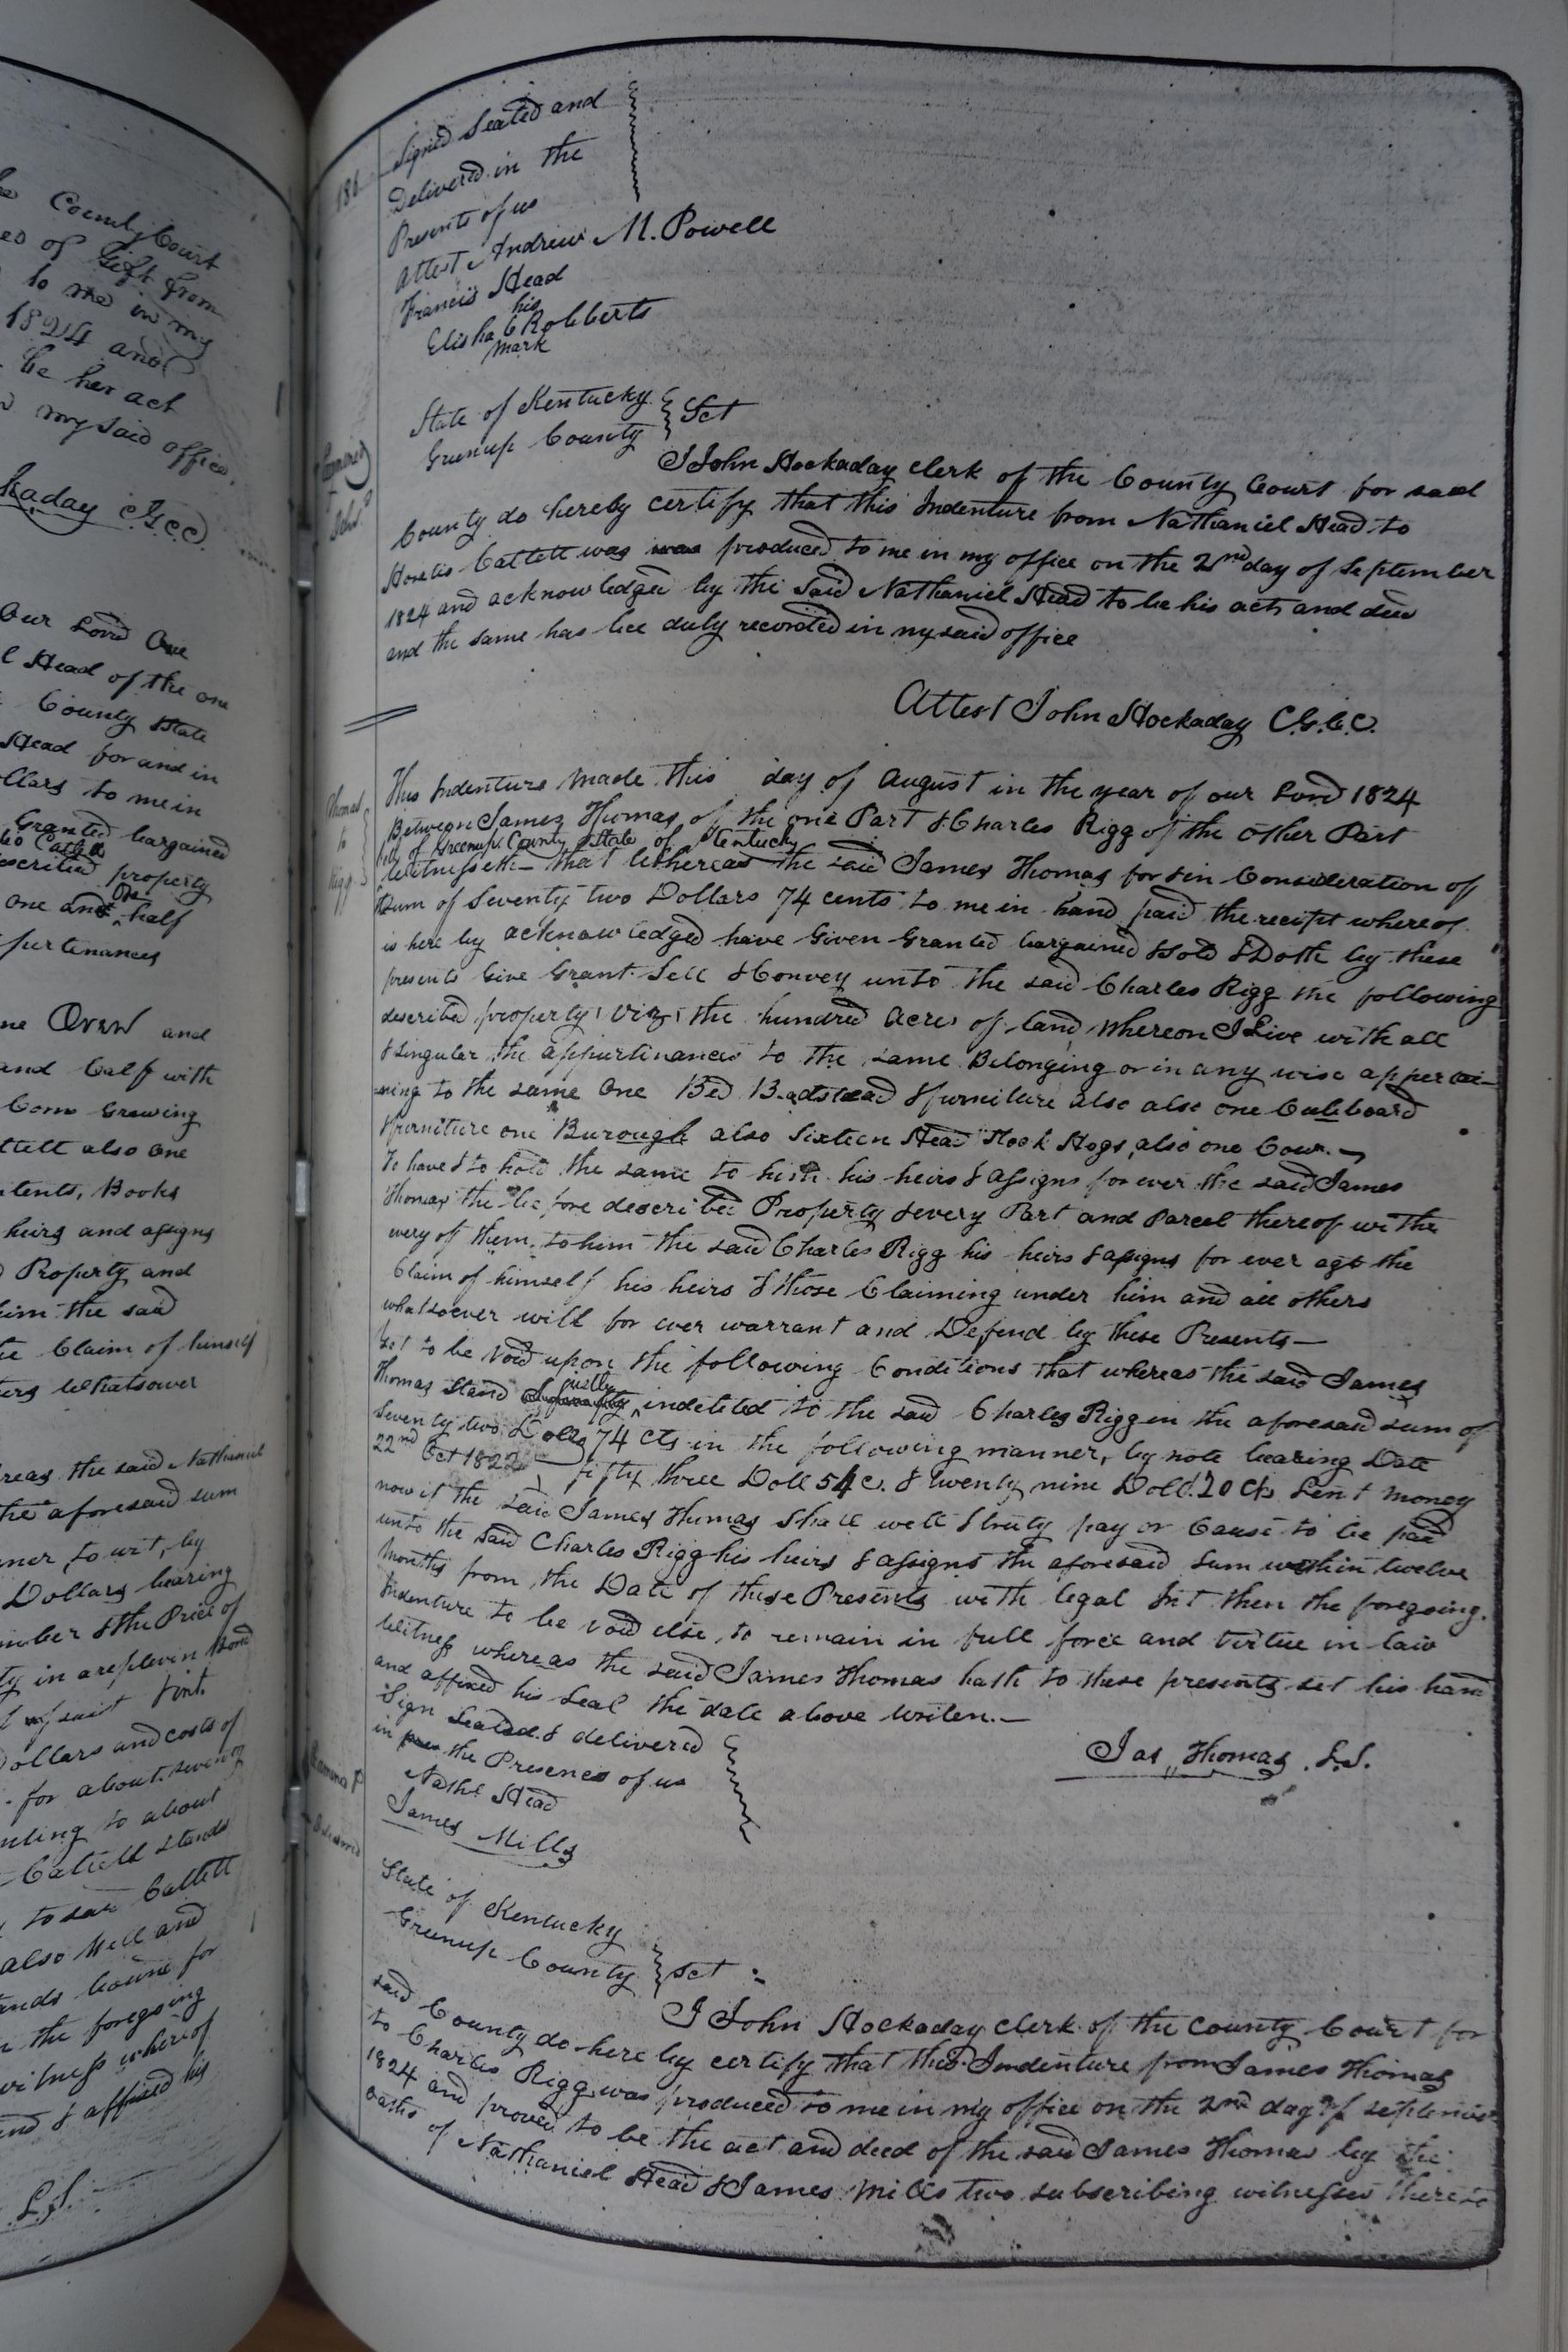 he County Court
ed of Gift from
to me in my
1824 and
be her act
my said office
kaday C.G.C.C.
Our Lord One
l Head of the one
County State
Head for and in
ollars to me in
Granted bargained
described property
One and One half
purtenances
ne Oven and
and Calf with
Corn Growing
ttlett also One
Books
heirs and assigns
Property and
him the said
te Claim of himself
ers Whatsoever
reas the said Nathaniel
the aforesaid sum
ner, to wit, by
Dollars bearing
mber & the Price of
ty in a replevin bond
suit
Dollars and costs of
for about seven
nting to about
Catlett stands
to said Catlett
also Well and
ands bound for
the foregoing
witness whereof
and & affixed his
L.S.
186
Signed Sealed and
Delivered in the
Presents of us
Attest Andrew M. Powell
Francis Head
his
Elisha C Robberts
mark
State of Kentucky
Greenup County } Sct
I John Hockaday Clerk of the County Court for said
County do hereby certify that this Indenture from Nathaniel Head to
Horatio Catlett was was produced to me in my office on the 2nd day of September
1824 and acknowledged by the said Nathaniel Head to be his act and deed
and the same has bee duly recorded in my said office
Attest John Hockaday C.G.C.C.
Thomas
to
Rigg
This Indenture Made this day of August in the year of our Lord 1824
Between James Thomas of the one Part & Charles Rigg of the Other Part
of Greenup County State of Kentucky
Witnesseth that Whereas the said James Thomas for & in Consideration of
Sum of Seventy two Dollars 74 cents to me in hand paid the receipt whereof
is here by acknowledged have Given Granted bargained & Sold & Doth by these
presents Give Grant Sell & Convey unto the said Charles Rigg the following
described property, Viz, the hundred Acres of land Whereon I Live with all
& singular the appurtinances to the same Belonging or in any wise appertai-
ning to the same One Bed Badstead & furniture also also one Cubboard
& furniture one Burough also Sixteen Head Stock Hogs, also one Cow.
To have & to hold the same to him his heirs & Assigns for ever the said James
Thomas the be fore described Property & every Part and Parcel thereof with
every of them to him the said Charles Rigg his heirs & assigns for ever agt the
Claim of himself his heirs & those Claiming under him and all others
whatsoever will for ever warrant and Defend by these Presents—
Yet to be Void upon the following Conditions that whereas the said James
justly
Thomas Stand indebted to the said Charles Rigg in the aforesaid sum of
Seventy two Dolls 74 cts in the following manner, by note bearing Date
22nd Oct 1822 fifty three Doll 54 c. & twenty nine Doll. 20 Cts Lent money
now if the said James Thomas Shall well & truly pay or Cause to be paid
unto the said Charles Rigg his heirs & assigns the aforesaid sum within twelve
Months from the Date of these Presents with legal Int then the foregoing
Indenture to be void else to remain in full force and virtue in law
Witness whereas the said James Thomas hath to these presents set his hand
and affixed his Seal the date above writen.—
Sign Sealed & delivered
in the Presence of us
Nathl Head
James Mills
Jas Thomas L.S.
State of Kentucky
Greenup County } Sct
I John Hockaday Clerk of the County Court for
said County do here by certify that this Indenture from James Thomas
to Charles Rigg was produced to me in my office on the 2nd day of September
1824 and proved to be the act and deed of the said James Thomas by the
oaths of Nathaniel Head & James Mills two subscribing witnesses thereto